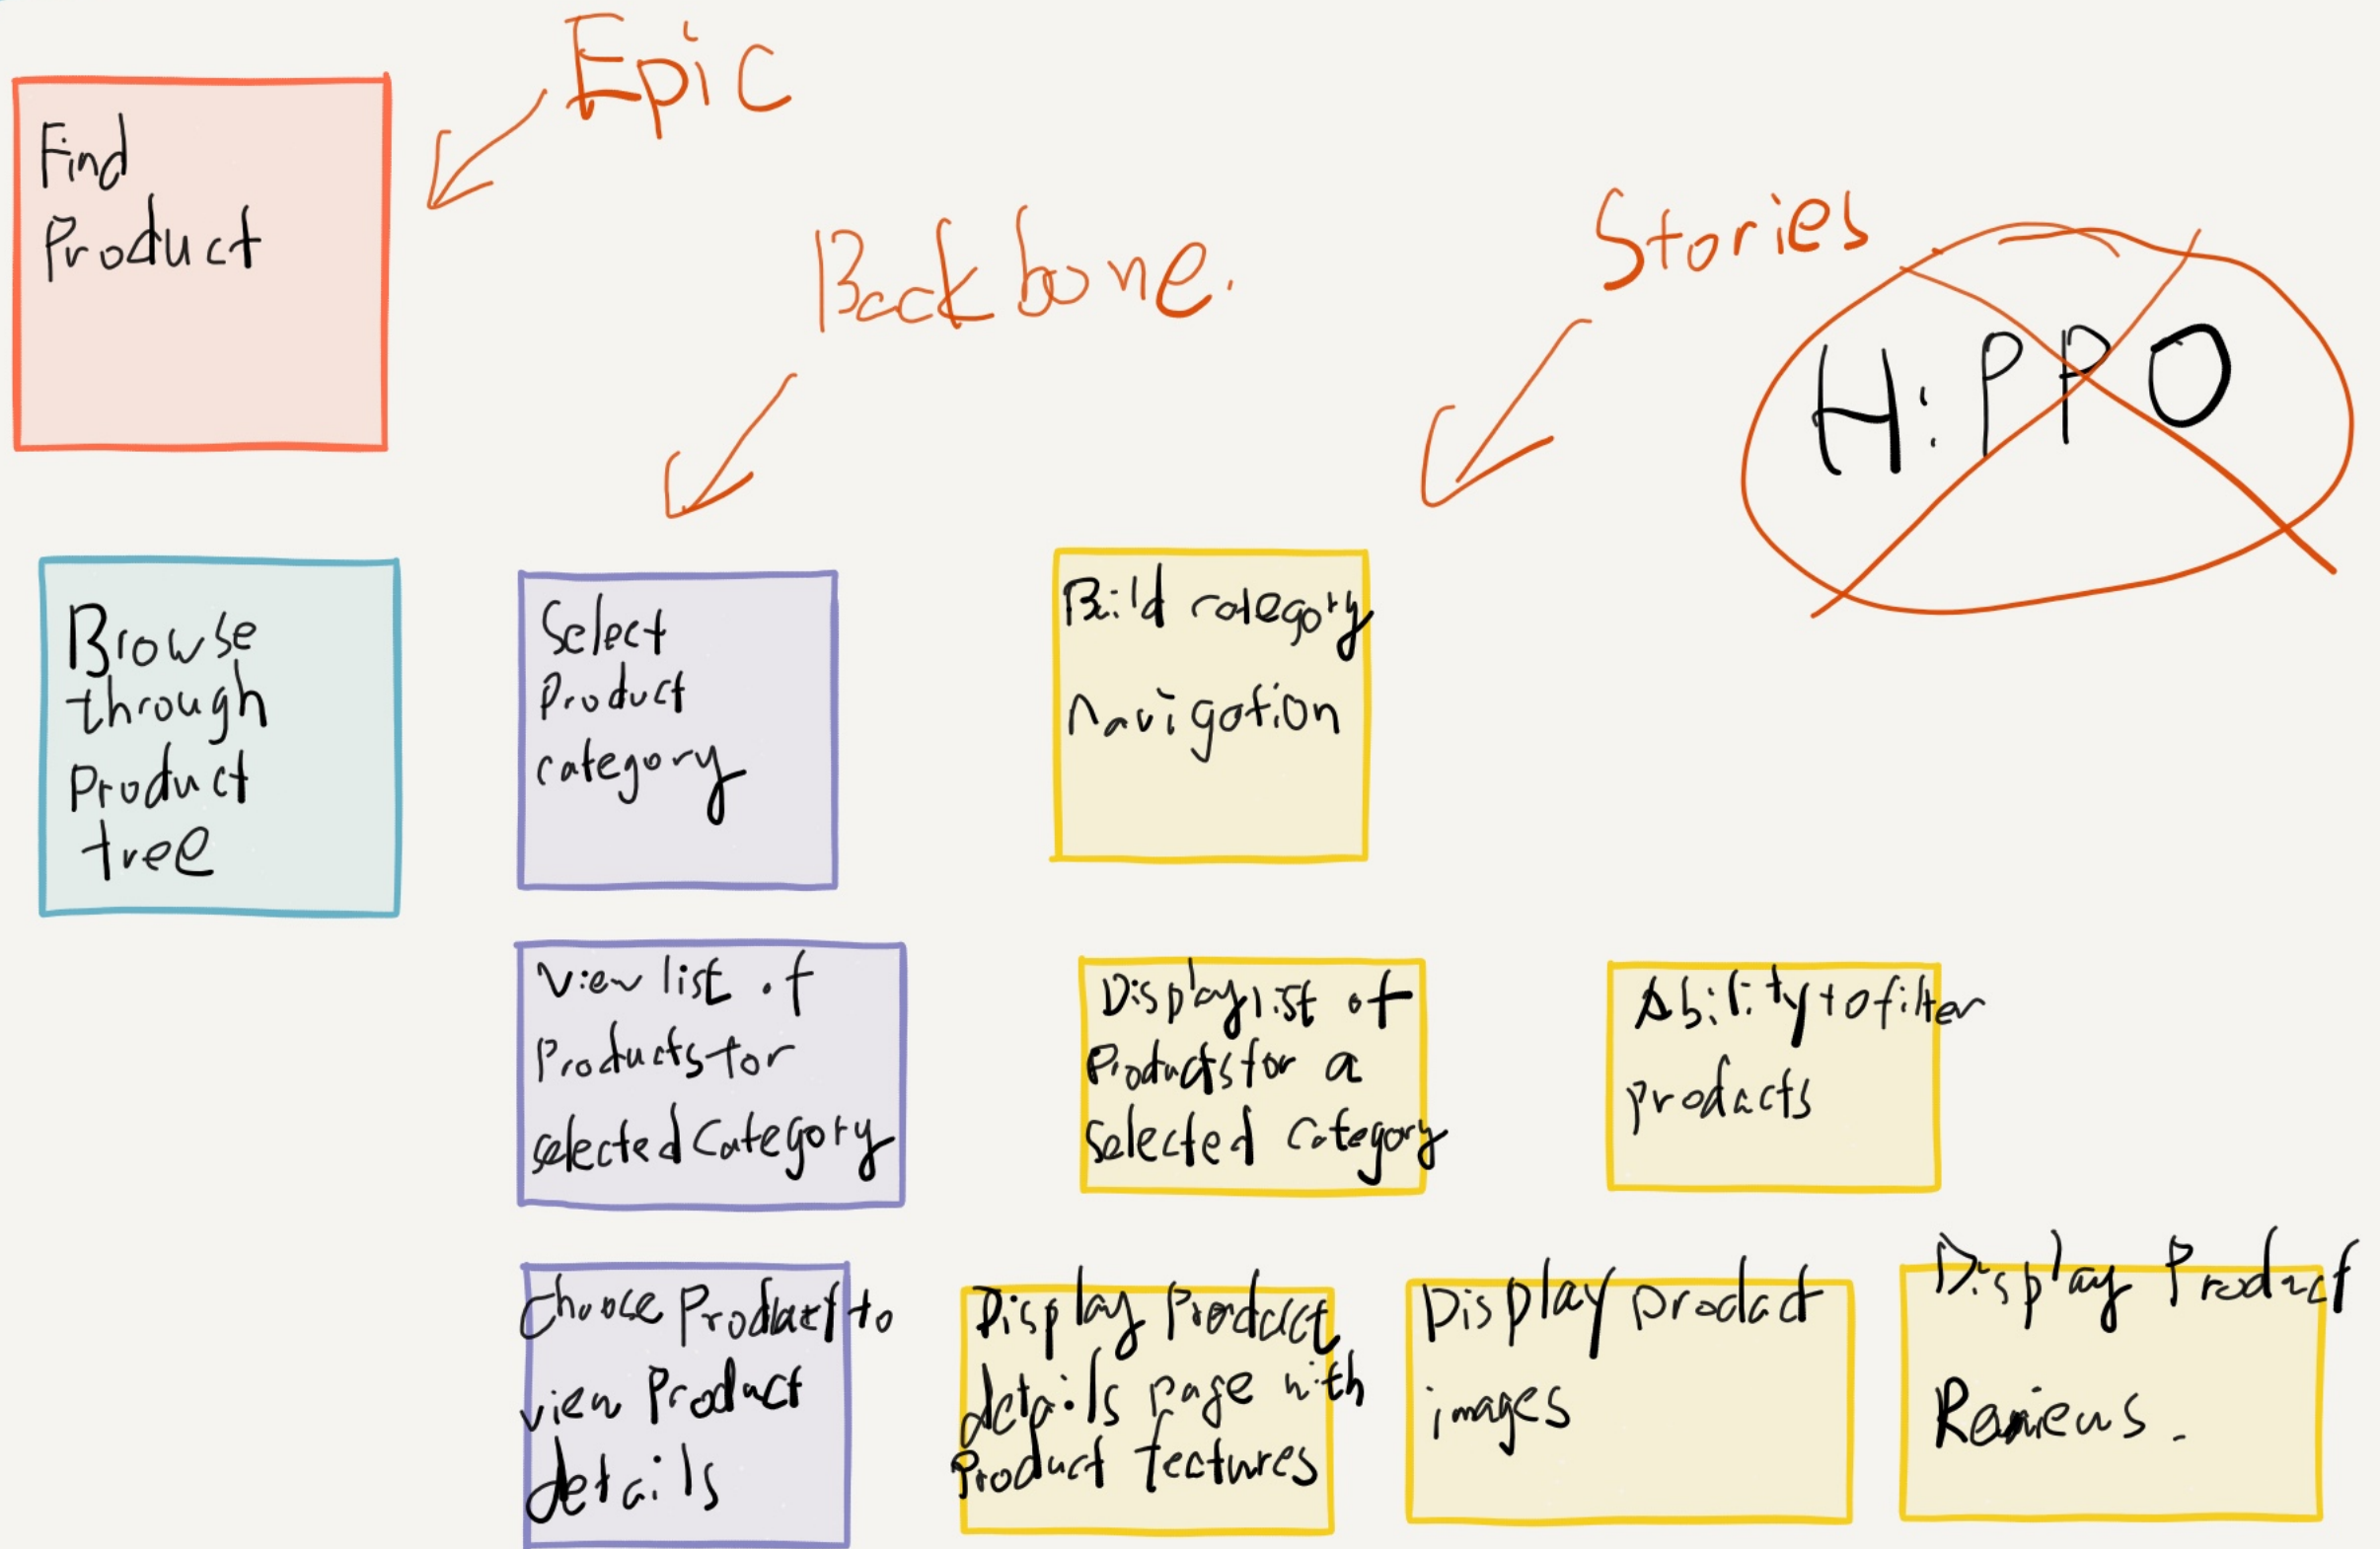 Epic
Find
Product
Backbone.
Stories
H:PPO
Browse
through
Product
tree
Select
Product
category
Build category
navigation
View list of
Products for
selected Category
Display list of
Products for a
selected Category
Ability to filter
products
Choose Product to
view Product
details
Display Product
details page with
Product features
Display product
images
Display Product
Reviews.